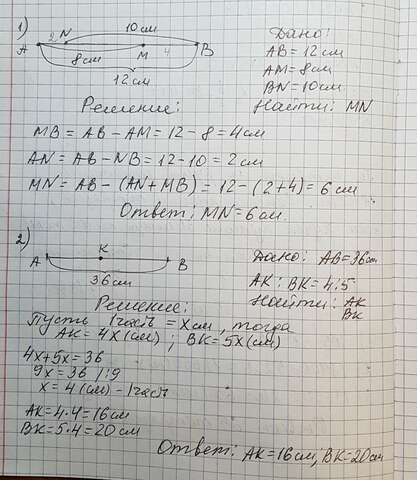 1)
10см
A 2 N M 4 B
8см
12см
Дано:
AB = 12см
AM = 8см
BN = 10см
Найти: MN
Решение:
MB = AB - AM = 12 - 8 = 4см
AN = AB - NB = 12 - 10 = 2см
MN = AB - (AN + MB) = 12 - (2+4) = 6см
Ответ: MN = 6см.
2)
A K B
36см
Дано: AB = 36см
AK : BK = 4:5
Найти: AK
BK
Решение:
Пусть 1часть = x см, тогда
AK = 4x (см) ; BK = 5x (см)
4x + 5x = 36
9x = 36 /:9
x = 4 (см) - 1часть
AK = 4·4 = 16см
BK = 5·4 = 20см
Ответ: AK = 16см; BK = 20см